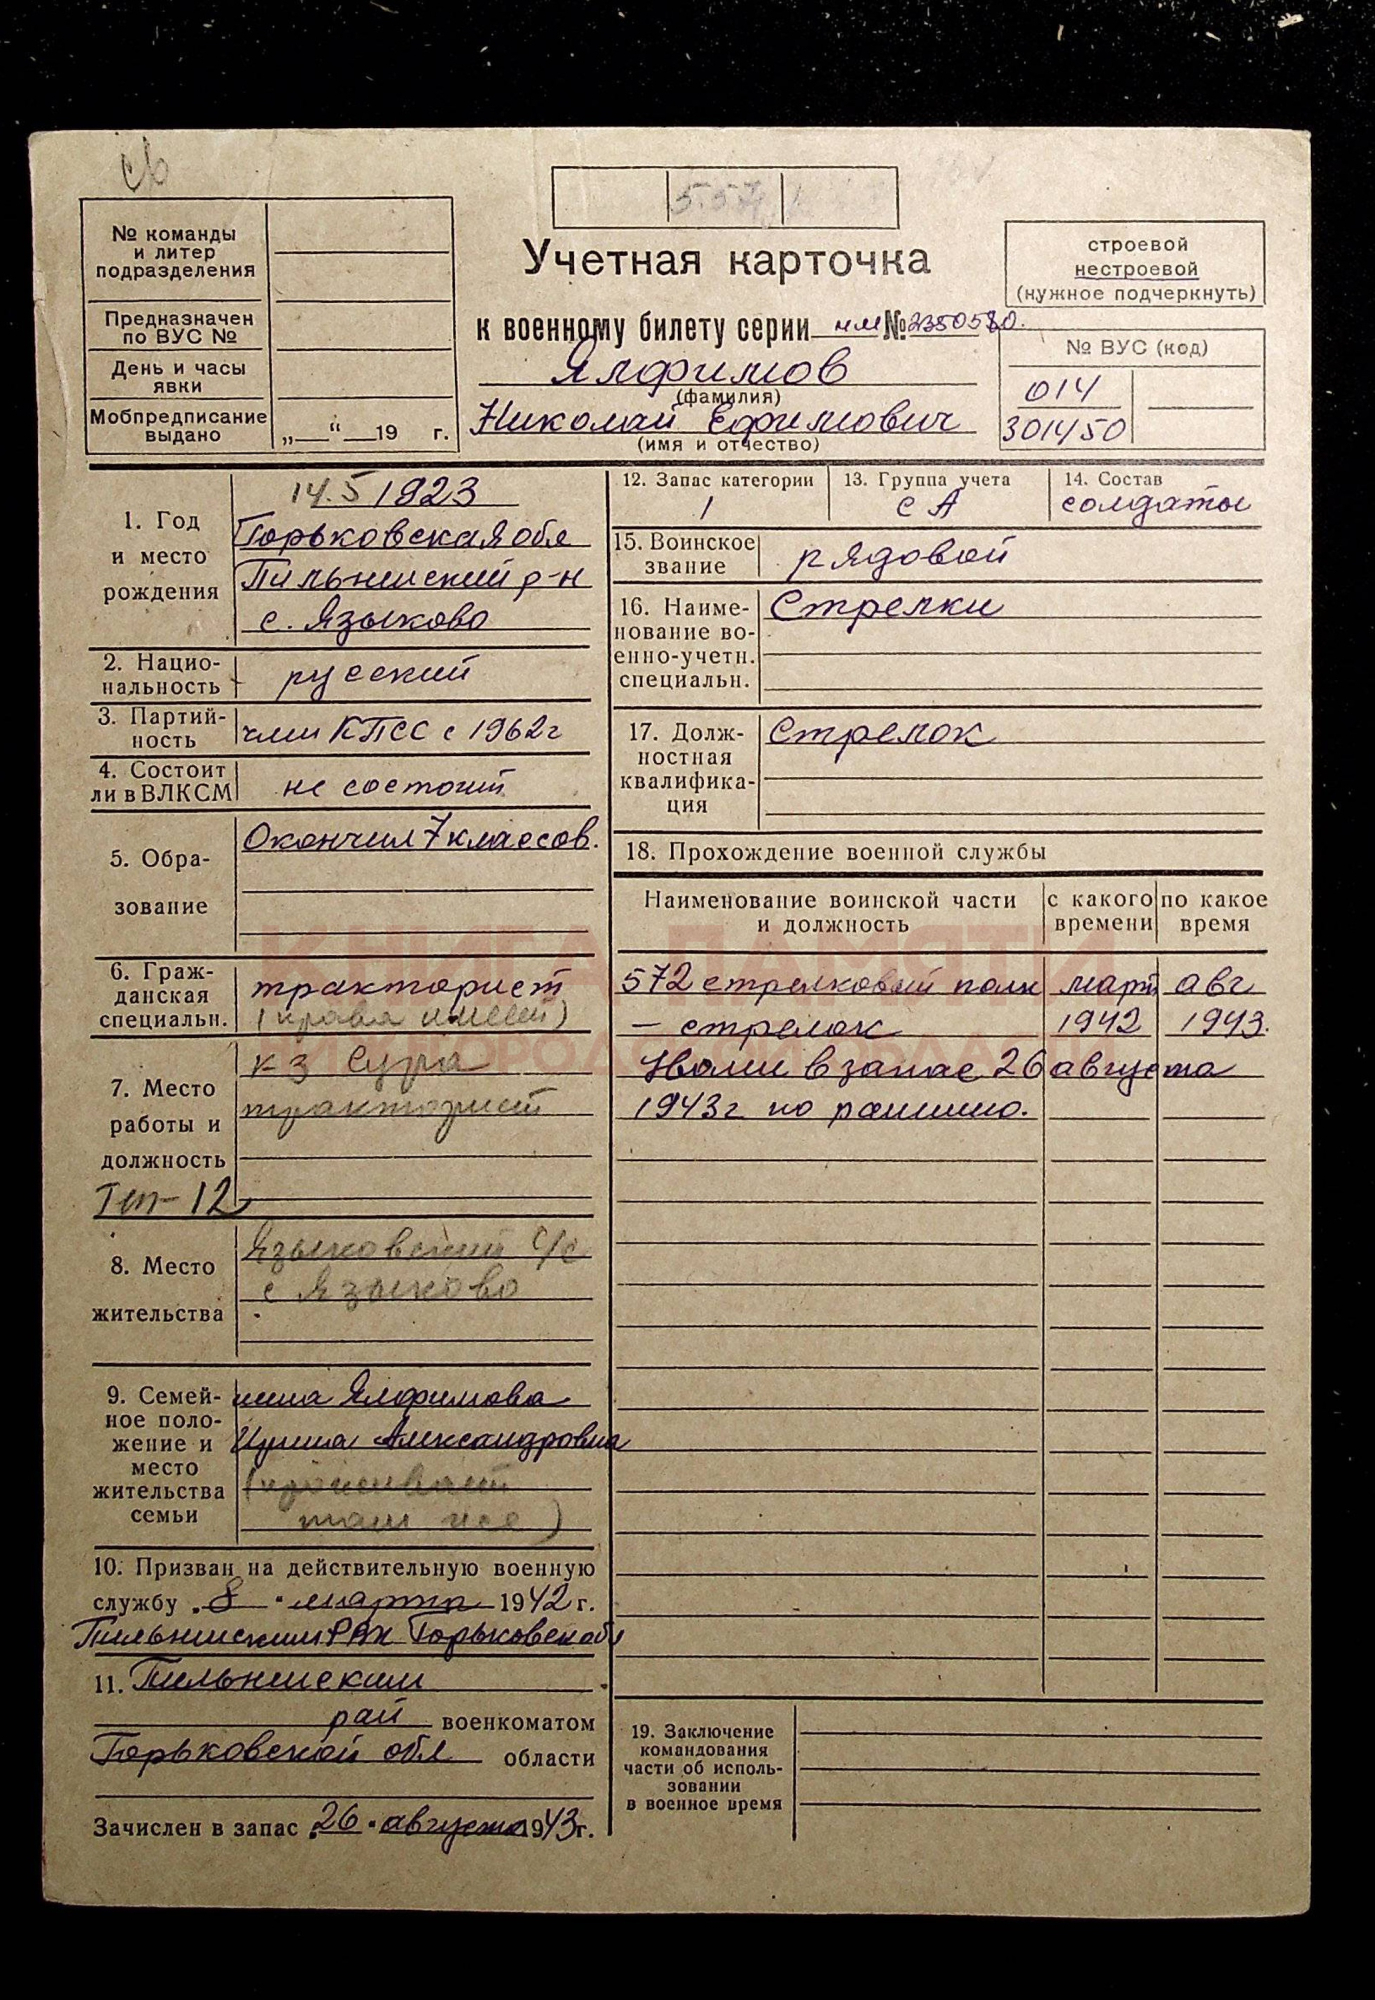 св
557
№ команды
и литер
подразделения
Предназначен
по ВУС №
День и часы
явки
Мобпредписание
выдано
„ “ 19 г.
Учетная карточка
к военному билету серии нм № 2350580.
Ялфимов
(фамилия)
Николай Ефимович
(имя и отчество)
строевой
нестроевой
(нужное подчеркнуть)
№ ВУС (код)
014
301450
1. Год
и место
рождения
14.5 1923
Горьковская обл
Пильнинский р-н
с. Языково
2. Нацио-
нальность
русский
3. Партий-
ность
член КПСС с 1962г
4. Состоит
ли в ВЛКСМ
не состоит
5. Обра-
зование
Окончил 7 классов.
6. Граж-
данская
специальн.
тракторист
(права имеет)
7. Место
работы и
должность
кз Сура
тракторист
Тел-12
8. Место
жительства
Языковский с/с
с Языково
9. Семей-
ное поло-
жение и
место
жительства
семьи
жена Ялфимова
Ирина Александровна
(проживает
там же)
10. Призван на действительную военную
службу „8 “ марта 1942 г.
Пильнинским РВК Горьковской обл
11. Пильнинским
рай военкоматом
Горьковской обл области
Зачислен в запас „26 “ августа 1943г.
12. Запас категории
1
13. Группа учета
СА
14. Состав
солдаты
15. Воинское
звание
рядовой
16. Наиме-
нование во-
енно-учетн.
специальн.
Стрелки
17. Долж-
ностная
квалифика-
ция
Стрелок
18. Прохождение военной службы
Наименование воинской части
и должность
с какого
времени
по какое
время
572 стрелковый полк март авг
– стрелок 1942 1943.
Уволен в запас 26 августа
1943г по ранению.
19. Заключение
командования
части об исполь-
зовании
в военное время
КНИГА ПАМЯТИ
НИЖЕГОРОДСКОЙ ОБЛАСТИ